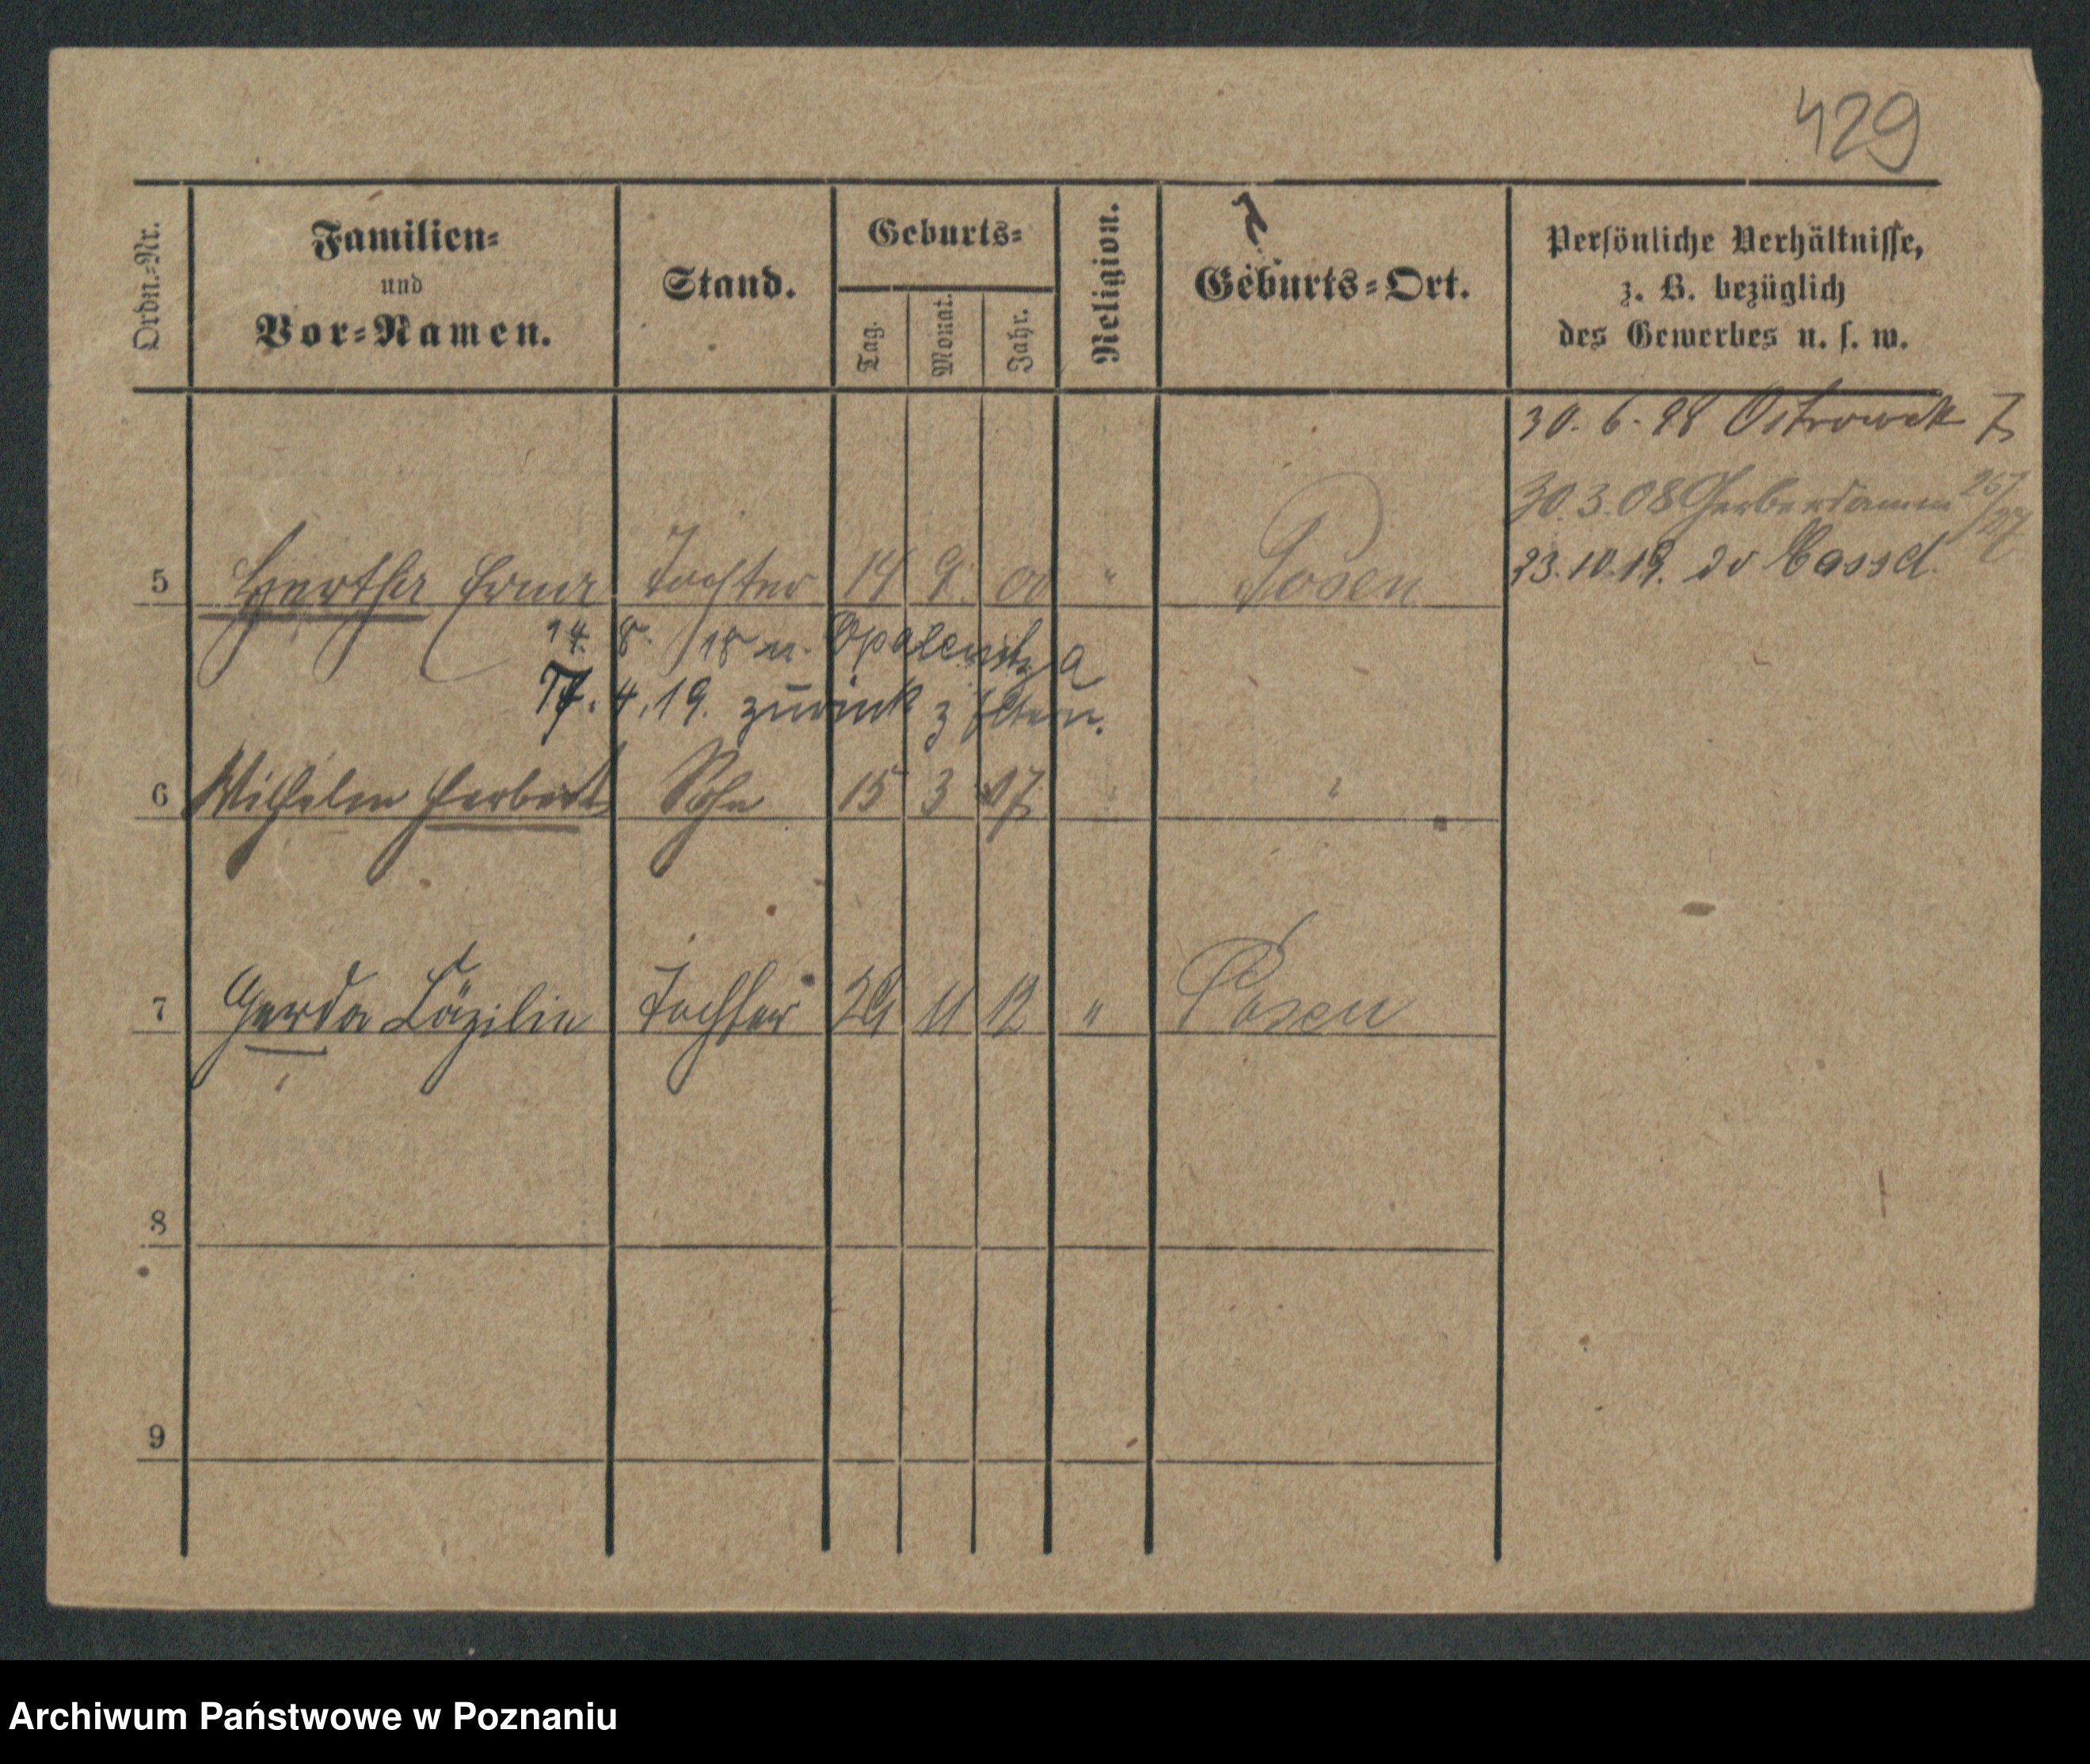 429
Ordn.-Nr.
Familien-
und
Vor-Namen.
Stand.
Geburts-
Tag.
Monat.
Jahr.
Religion.
Geburts-Ort.
Persönliche Verhältnisse,
z. B. bezüglich
des Gewerbes u. s. w.
30. 6. 98 Ostrowek 7
30. 3. 08 Gerberdamm
23. 10. 19. Cassel.
5 Hertha Erna Tochter 14 9. 00 " Posen
14. 8. 18 n. Opalenitza
17. 4. 19. zurück z Eltern.
6 Wilhelm Herbert Sohn 15 3 07 "
7 Gerda Cäzilie Tochter 29 11 12 " Posen
8
9
Archiwum Państwowe w Poznaniu